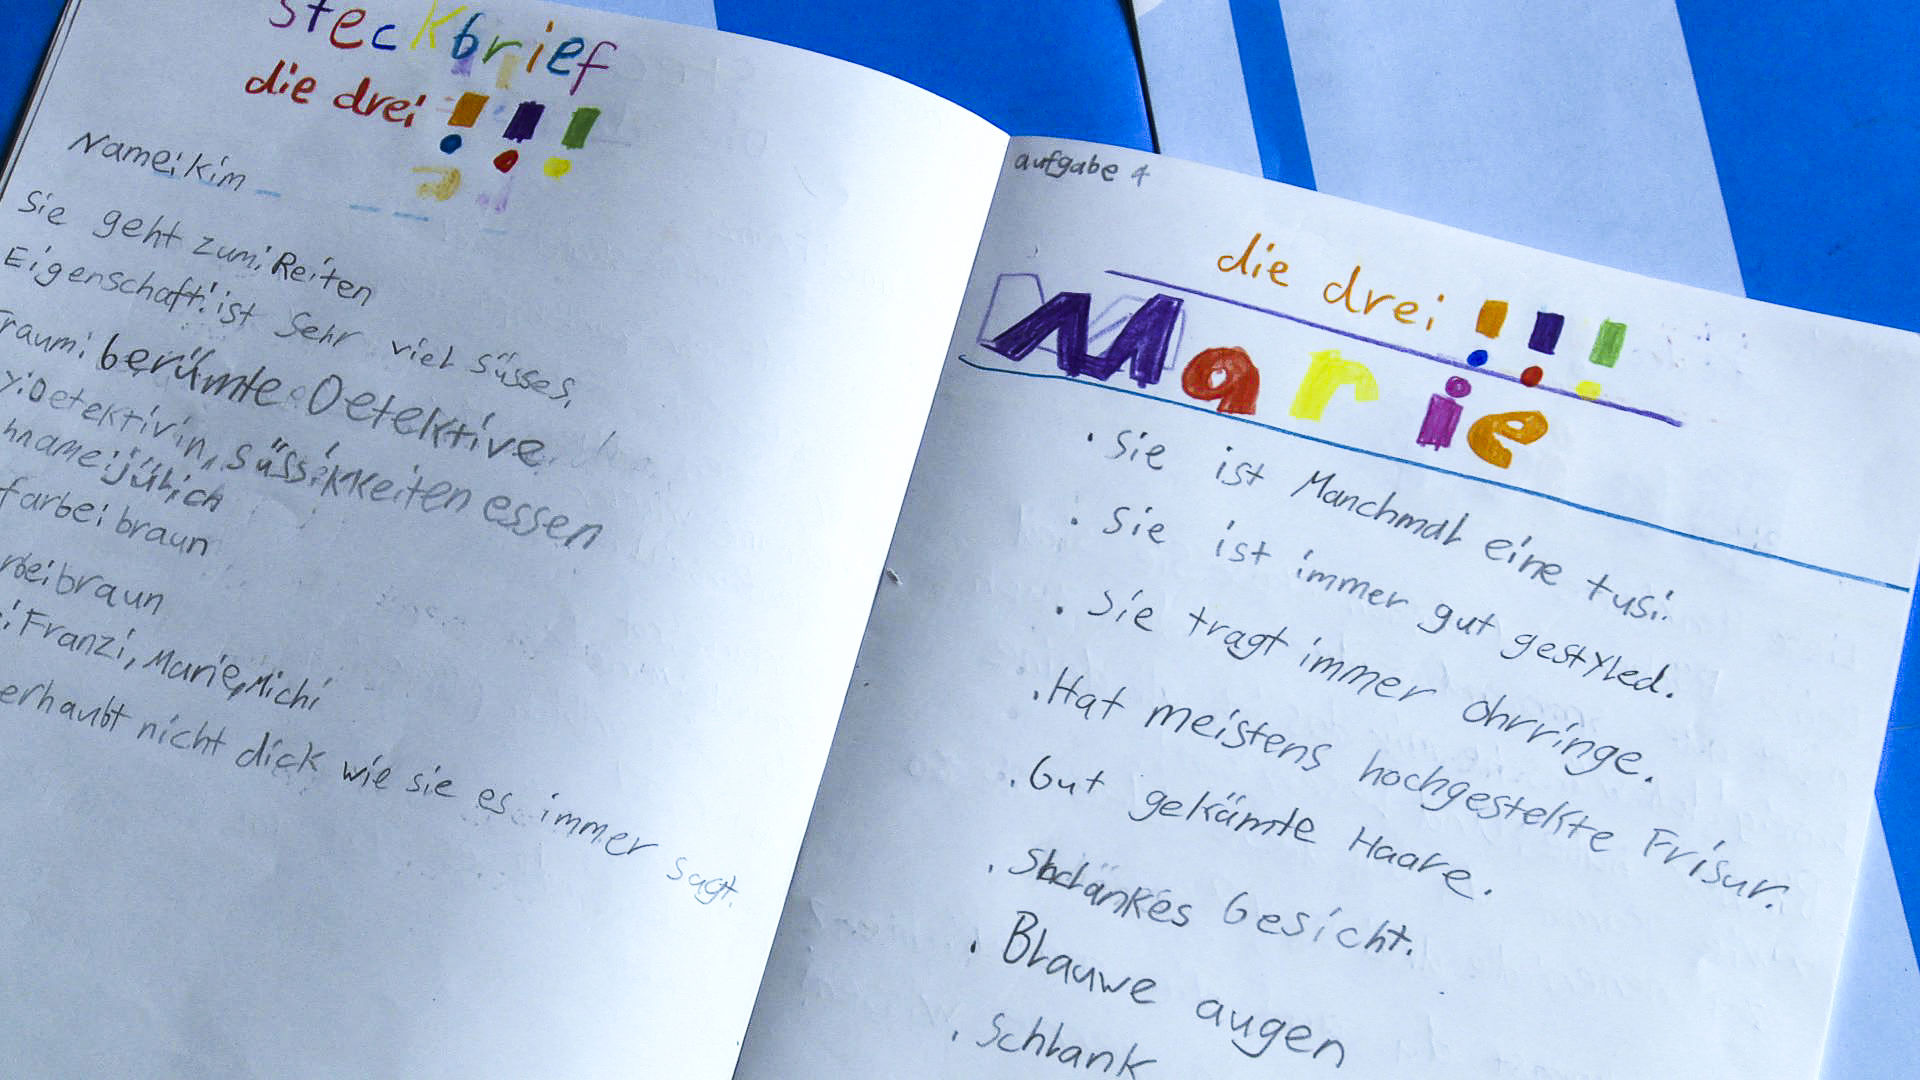 steckbrief
die drei !!!
Name: Kim
Sie geht zum: Reiten
Eigenschaft: ist Sehr viel süsses,
raum: berümte Detektive
y: Detektivin, süssikkeiten essen
hname: jülich
farbe: braun
rbe: braun
: Franzi, Marie, Michi
erhaubt nicht dick wie sie es immer sagt.
aufgabe 4
die drei !!!
Marie
• Sie ist Manchmal eine tusi.
• Sie ist immer gut gestyled.
• Sie tragt immer ohrringe.
• Hat meistens hochgestekte Frisur.
• Gut gekämte Haare.
• Gesicht.
• Blauwe augen
• Schlank